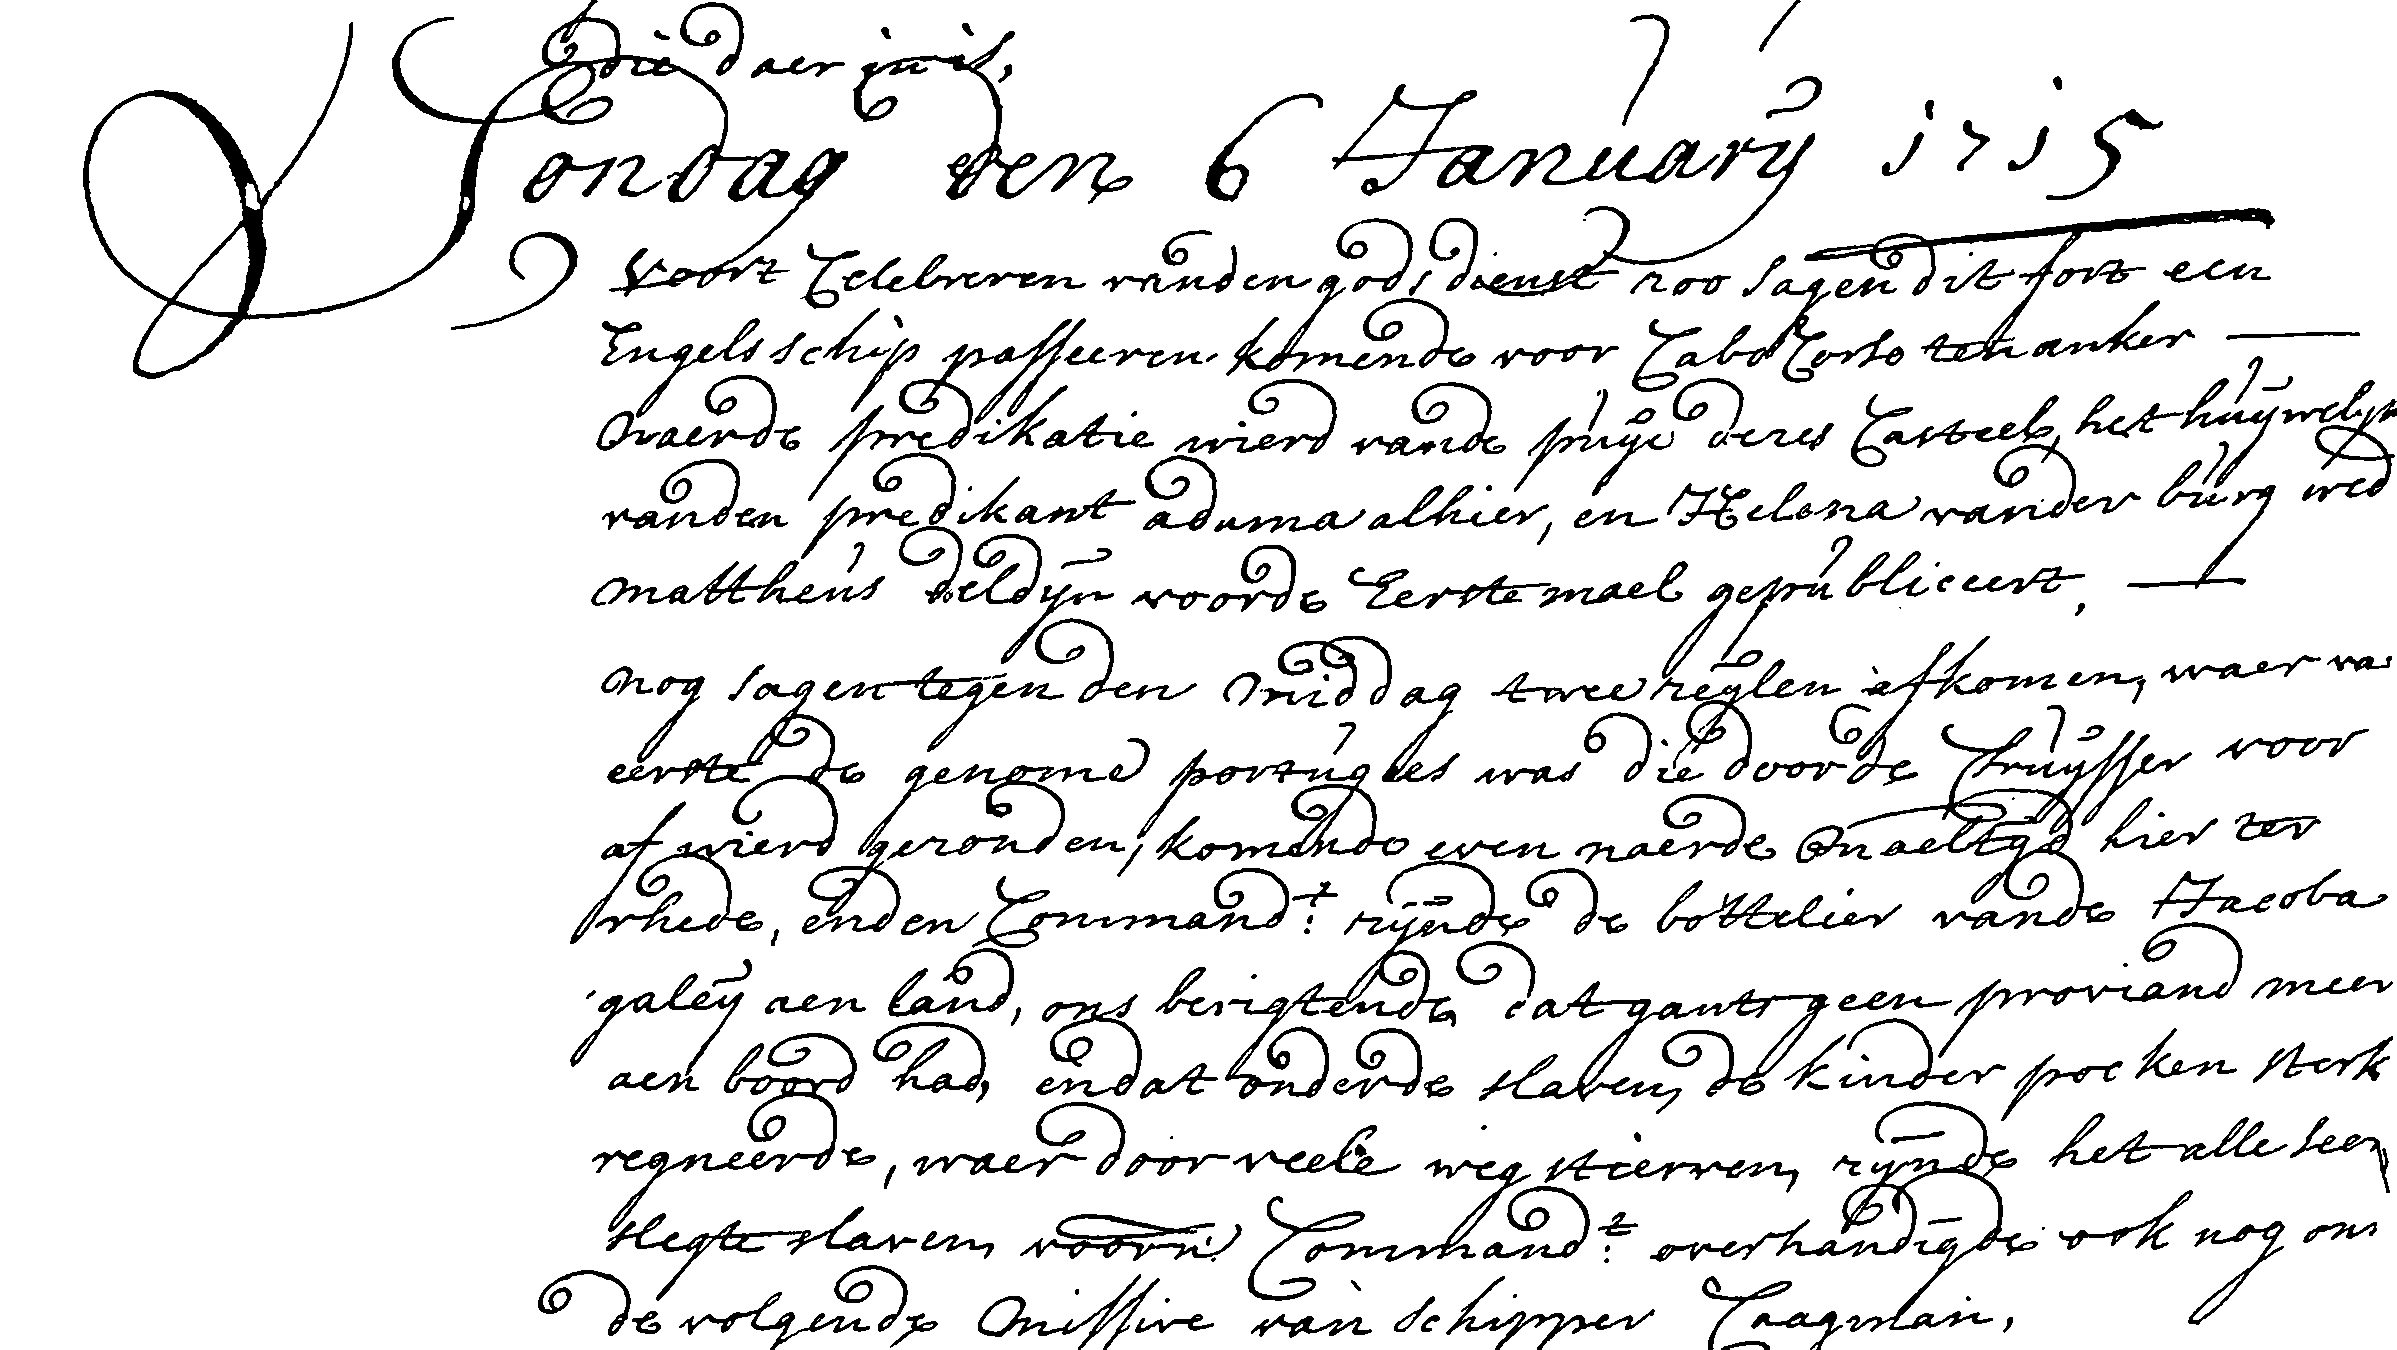 die daer in is,
Sondag den 6 January 1715
Voort Celebreren vanden gods dienst zoo sagen dit fort een
Engels schip passeeren komende voor Cabo Corso ten anker —
Naerde predikatie wierd vande puije deses Casteels, het huywelyk
vanden predikant aduma alhier, en Helena vander burg wed
mattheus deldyn voorde Eerste mael gepubliceert, —
nog sagen tegen den middag twee zeylen afkomen, waer va
eerste de genome portugees was die doorde Cruysser voor
af wierd gezonden, komende even naerde maeltyd hier ter
rhede, enden Command:t zynde de bottelier vande Jacoba
galey aen land, ons berigtende dat gants geen proviand meer
aen boord had, en dat onderde slaven, de kinder pocken sterk
regneerde, waer door veele weg stierven, zynde het alle seer
slegte slaven, voorn: Command:t overhandigde ook nog ons
de volgende missive van schipper Taagman,